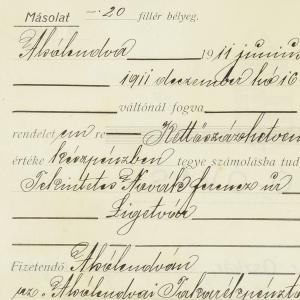 Másolat —·20 fillér bélyeg.
Alsólendva 1911 junius
1911 deczember hó 16
váltónál fogva
rendelet em re Kettőszázhetven
értéke készpénzben tegye számolásba tud
Tekintetes Novák Ferencz ur
Ligetvár
Fizetendő Alsólendván
pr. Alsólendvai Takarékpénzt